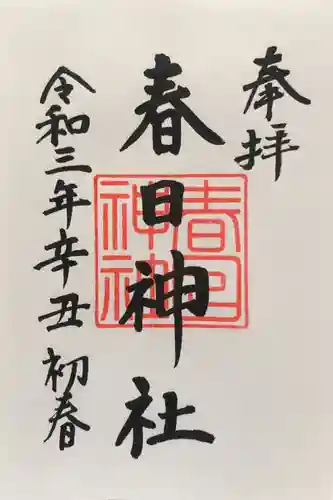 奉拝
春日神社
春日神社
令和三年辛丑初春